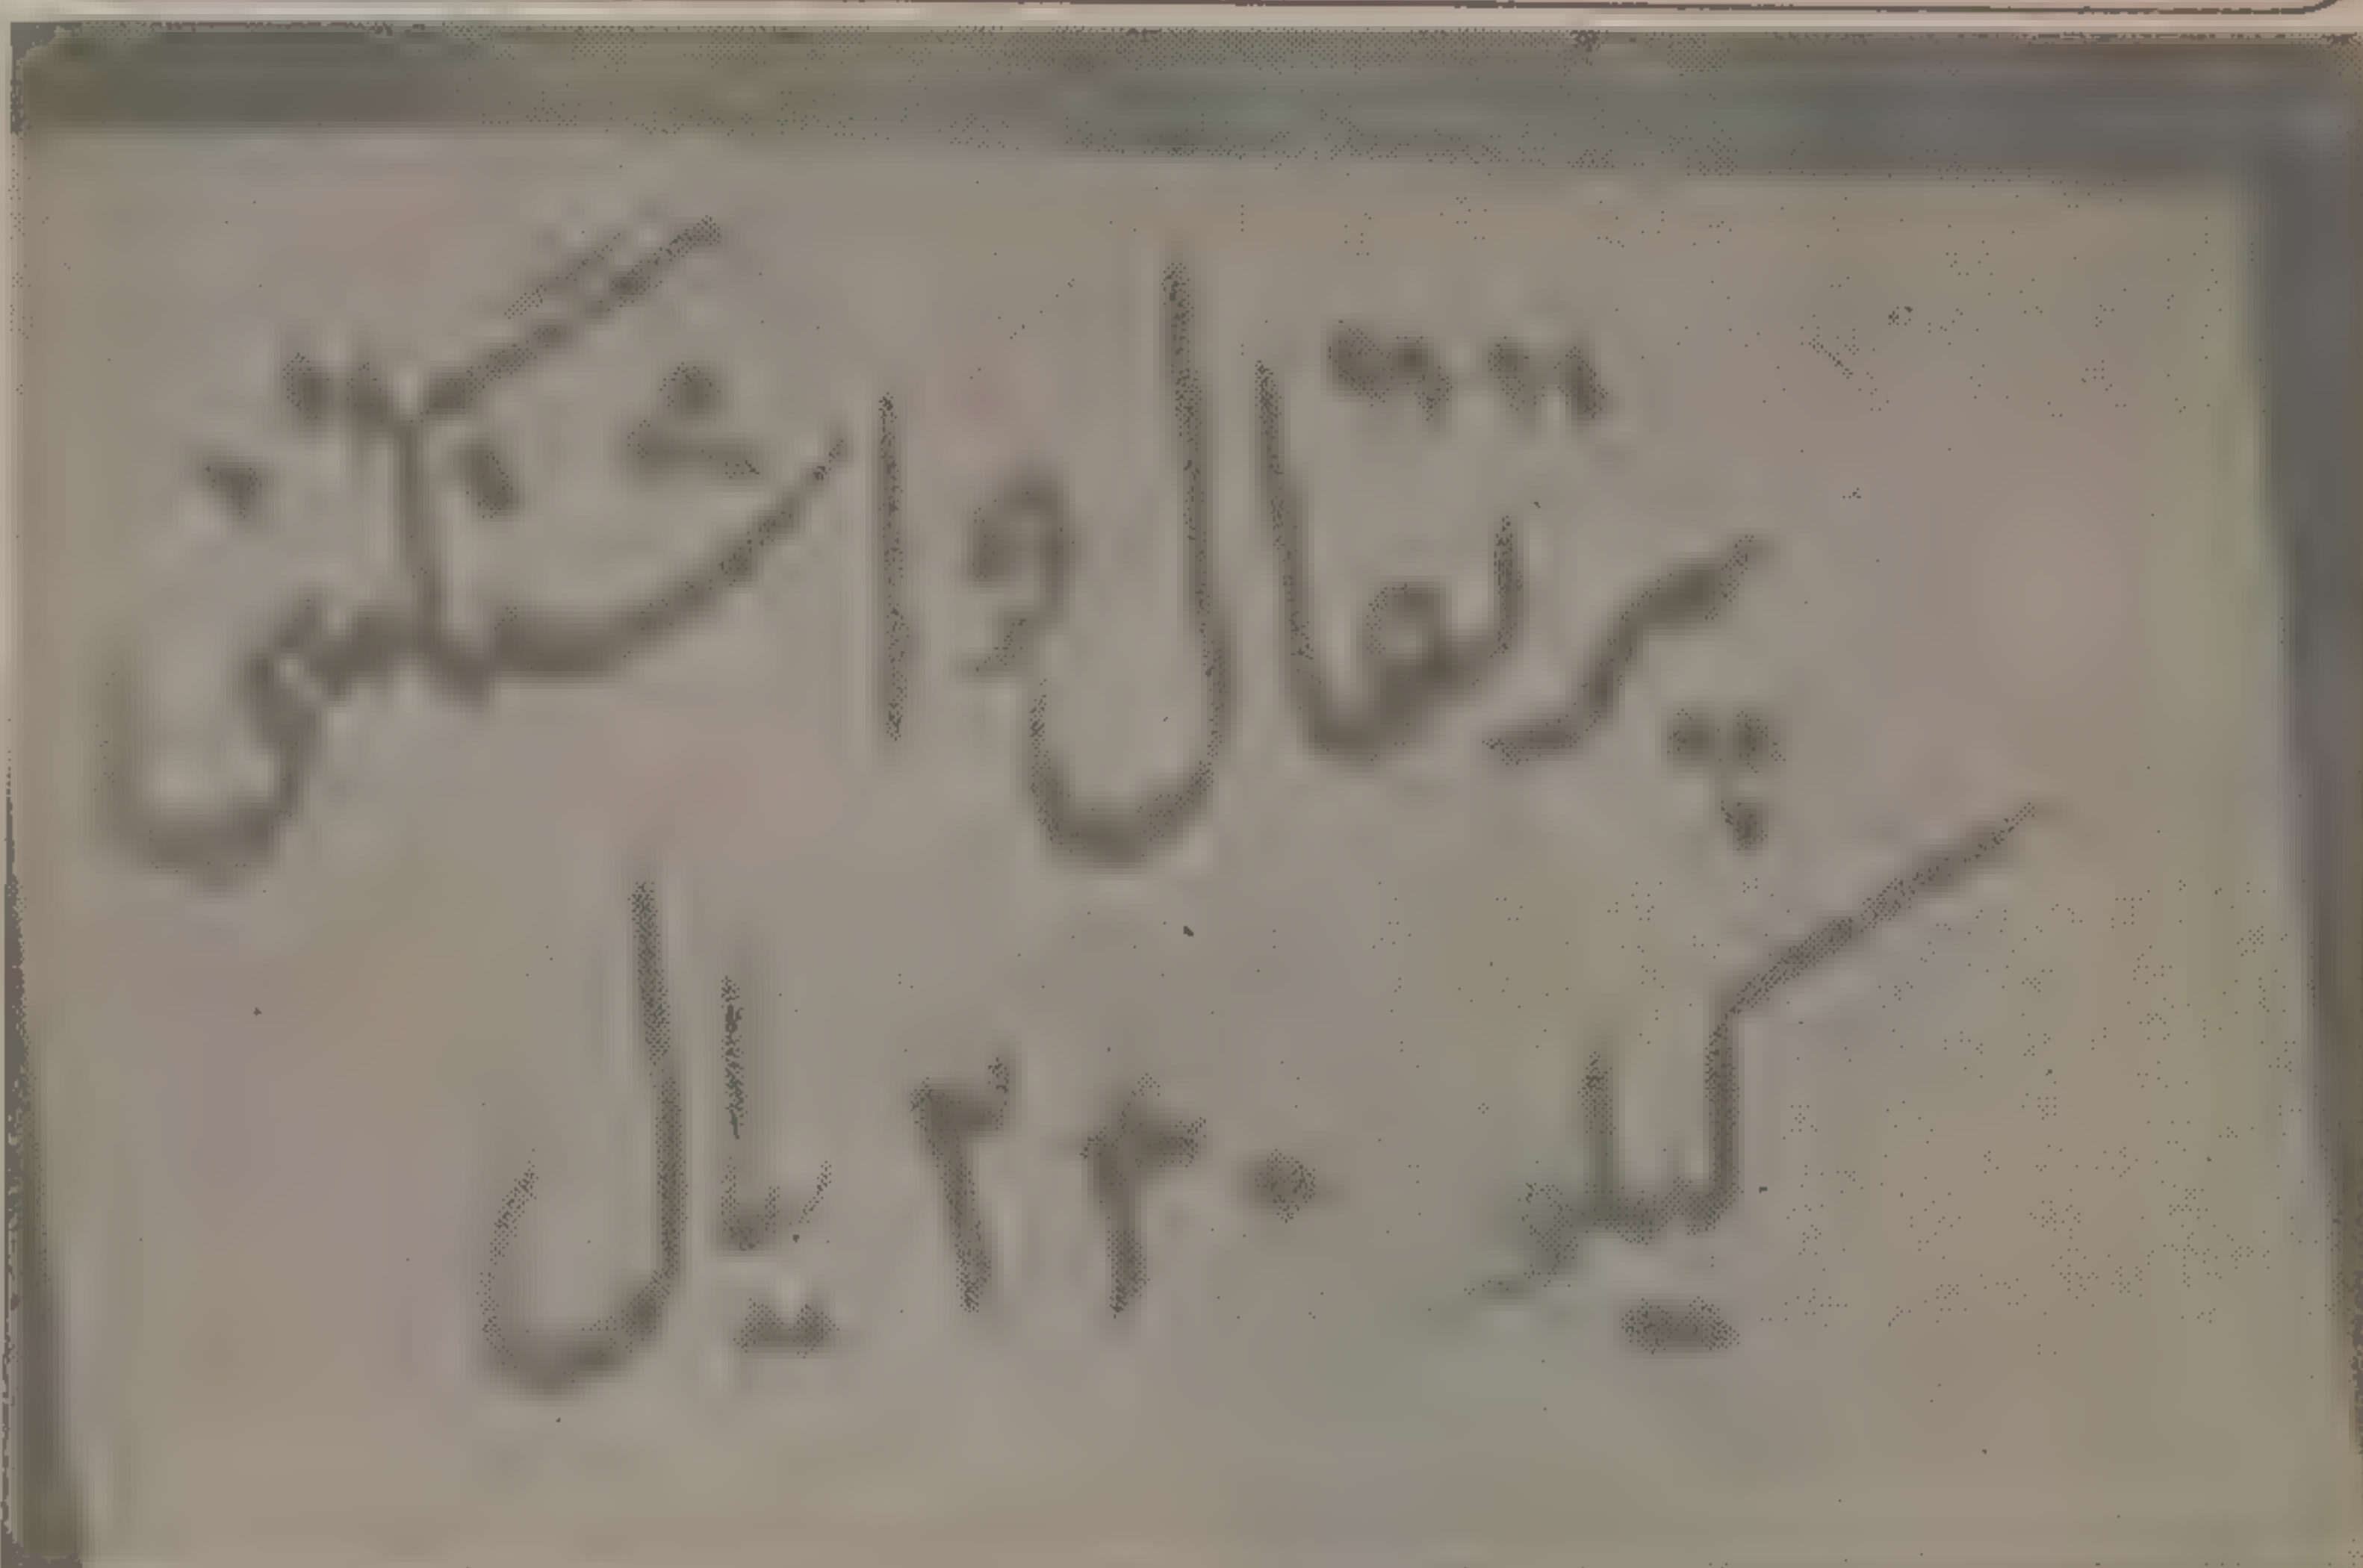 پرتقال واشنگتنی
کیلو ۲۳۰ ریال